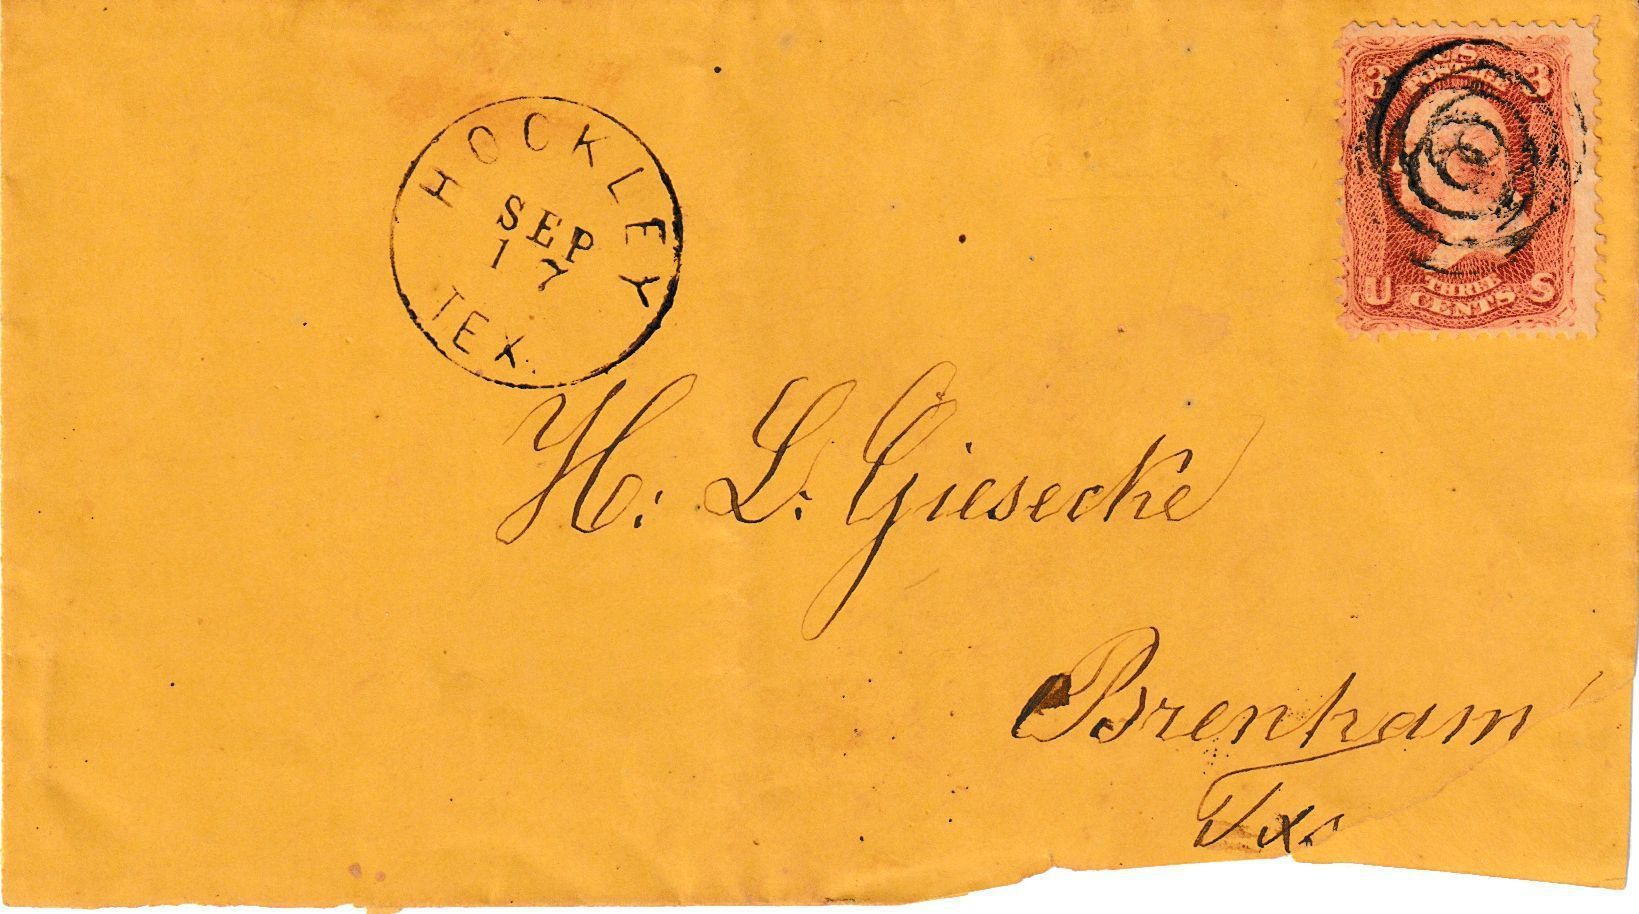 HOCKLEY
SEP
17
TEX.
3 U.S. 3
POSTAGE
U THREE S
CENTS
H. L. Giesecke
Brenham
Txs